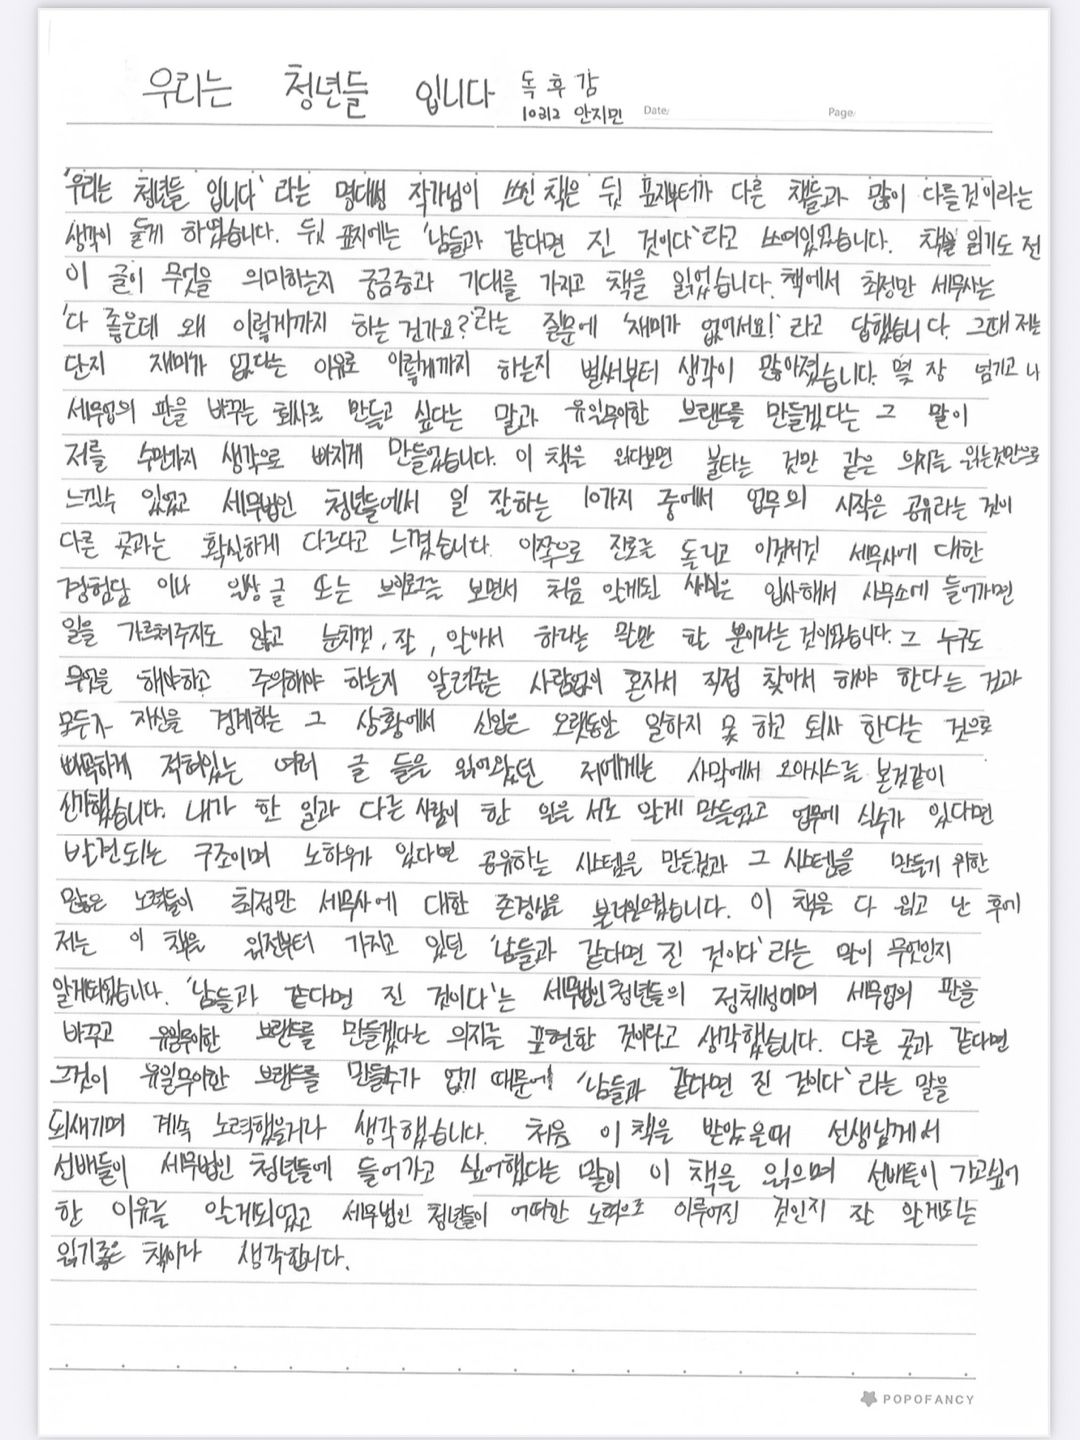 우리는 청년들 입니다 독후감
10312 안지민 Date/ Page/
'우리는 청년들 입니다' 라는 명대성 작가님이 쓰신 책은 뒷 표지부터가 다른 책들과 많이 다를것이라는
생각이 들게 하였습니다. 뒷 표지에는 '남들과 같다면 진 것이다' 라고 쓰여있었습니다. 책을 읽기도 전
이 글이 무엇을 의미하는지 궁금증과 기대를 가지고 책을 읽었습니다. 책에서 최정만 세무사는
'다 좋은데 왜 이렇게까지 하는 건가요?' 라는 질문에 '재미가 없어서요!' 라고 답했습니다. 그때 저는
단지 재미가 없다는 이유로 이렇게까지 하는지 벌써부터 생각이 많아졌습니다. 몇 장 넘기고 나
세무업의 판을 바꾸는 회사로 만들고 싶다는 말과 유일무이한 브랜드를 만들겠다는 그 말이
저를 수만가지 생각으로 빠지게 만들었습니다. 이 책을 읽다보면 불타는 것만 같은 의지를 읽는것만으로
느낄수 있었고 세무법인 청년들에서 일 잘하는 10가지 중에서 업무의 시작은 공유라는 것이
다른 곳과는 확실하게 다르다고 느꼈습니다. 이쪽으로 진로를 돌리고 이것저것 세무사에 대한
경험담 이나 인상 글 또는 브이로그를 보면서 처음 알게된 사실은 입사해서 사무소에 들어가면
일을 가르쳐주지도 않고 눈치껏, 잘, 알아서 하라는 말만 한 뿐이라는 것이었습니다. 그 누구도
무엇을 해야하고 주의해야 하는지 알려주는 사람없이 혼자서 직접 찾아서 해야 한다는 것과
모두가 자신을 경계하는 그 상황에서 신입은 오랫동안 일하지 못 하고 퇴사 한다는 것으로
빼곡하게 적혀있는 여러 글 들을 읽어왔던 저에게는 사막에서 오아시스를 본것같이
신기했습니다. 내가 한 일과 다른 사람이 한 일을 서로 알게 만들었고 업무에 실수가 있다면
발견되는 구조이며 노하우가 있다면 공유하는 시스템을 만든것과 그 시스템을 만들기 위한
많은 노력들이 최정만 세무사에 대한 존경심을 불러일으켰습니다. 이 책을 다 읽고 난 후에
저는 이 책을 읽기전부터 가지고 있던 '남들과 같다면 진 것이다' 라는 말이 무엇인지
알게되었습니다. '남들과 같다면 진 것이다' 는 세무법인 청년들의 정체성이며 세무업의 판을
바꾸고 유일무이한 브랜드를 만들겠다는 의지를 표현한 것이라고 생각했습니다. 다른 곳과 같다면
그것이 유일무이한 브랜드를 만들수가 없기 때문에 '남들과 같다면 진 것이다' 라는 말을
되새기며 계속 노력했을거라 생각했습니다. 처음 이 책을 받았을때 선생님께서
선배들이 세무법인 청년들에 들어가고 싶어했다는 말이 이 책을 읽으며 선배들이 가고싶어
한 이유를 알게되었고 세무법인 청년들이 어떠한 노력으로 이루어진 것인지 잘 알게되는
읽기좋은 책이라 생각합니다.
POPOFANCY